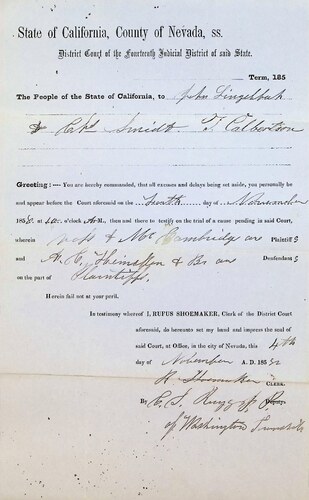 State of California, County of Nevada, ss.
District Court of the Fourteenth Judicial District of said State.
Term, 185
The People of the State of California, to John Lingelbah
& Smidt T. Culbertson
Greeting:—You are hereby commanded, that all excuses and delays being set aside, you personally be
and appear before the Court aforesaid on the day of November
185 at 10 o'clock A.M., then and there to testify on the trial of a cause pending in said Court,
wherein & Mc Cambridge are Plaintiffs
and A. & Bro are Defendants
on the part of Plaintiffs.
Herein fail not at your peril.
In testimony whereof I, RUFUS SHOEMAKER, Clerk of the District Court
aforesaid, do hereunto set my hand and impress the seal of
said Court, at Office, in the city of Nevada, this 4th
day of November A. D. 185
R. Shoemaker CLERK.
By C. S. Deputy.
of Washington Township